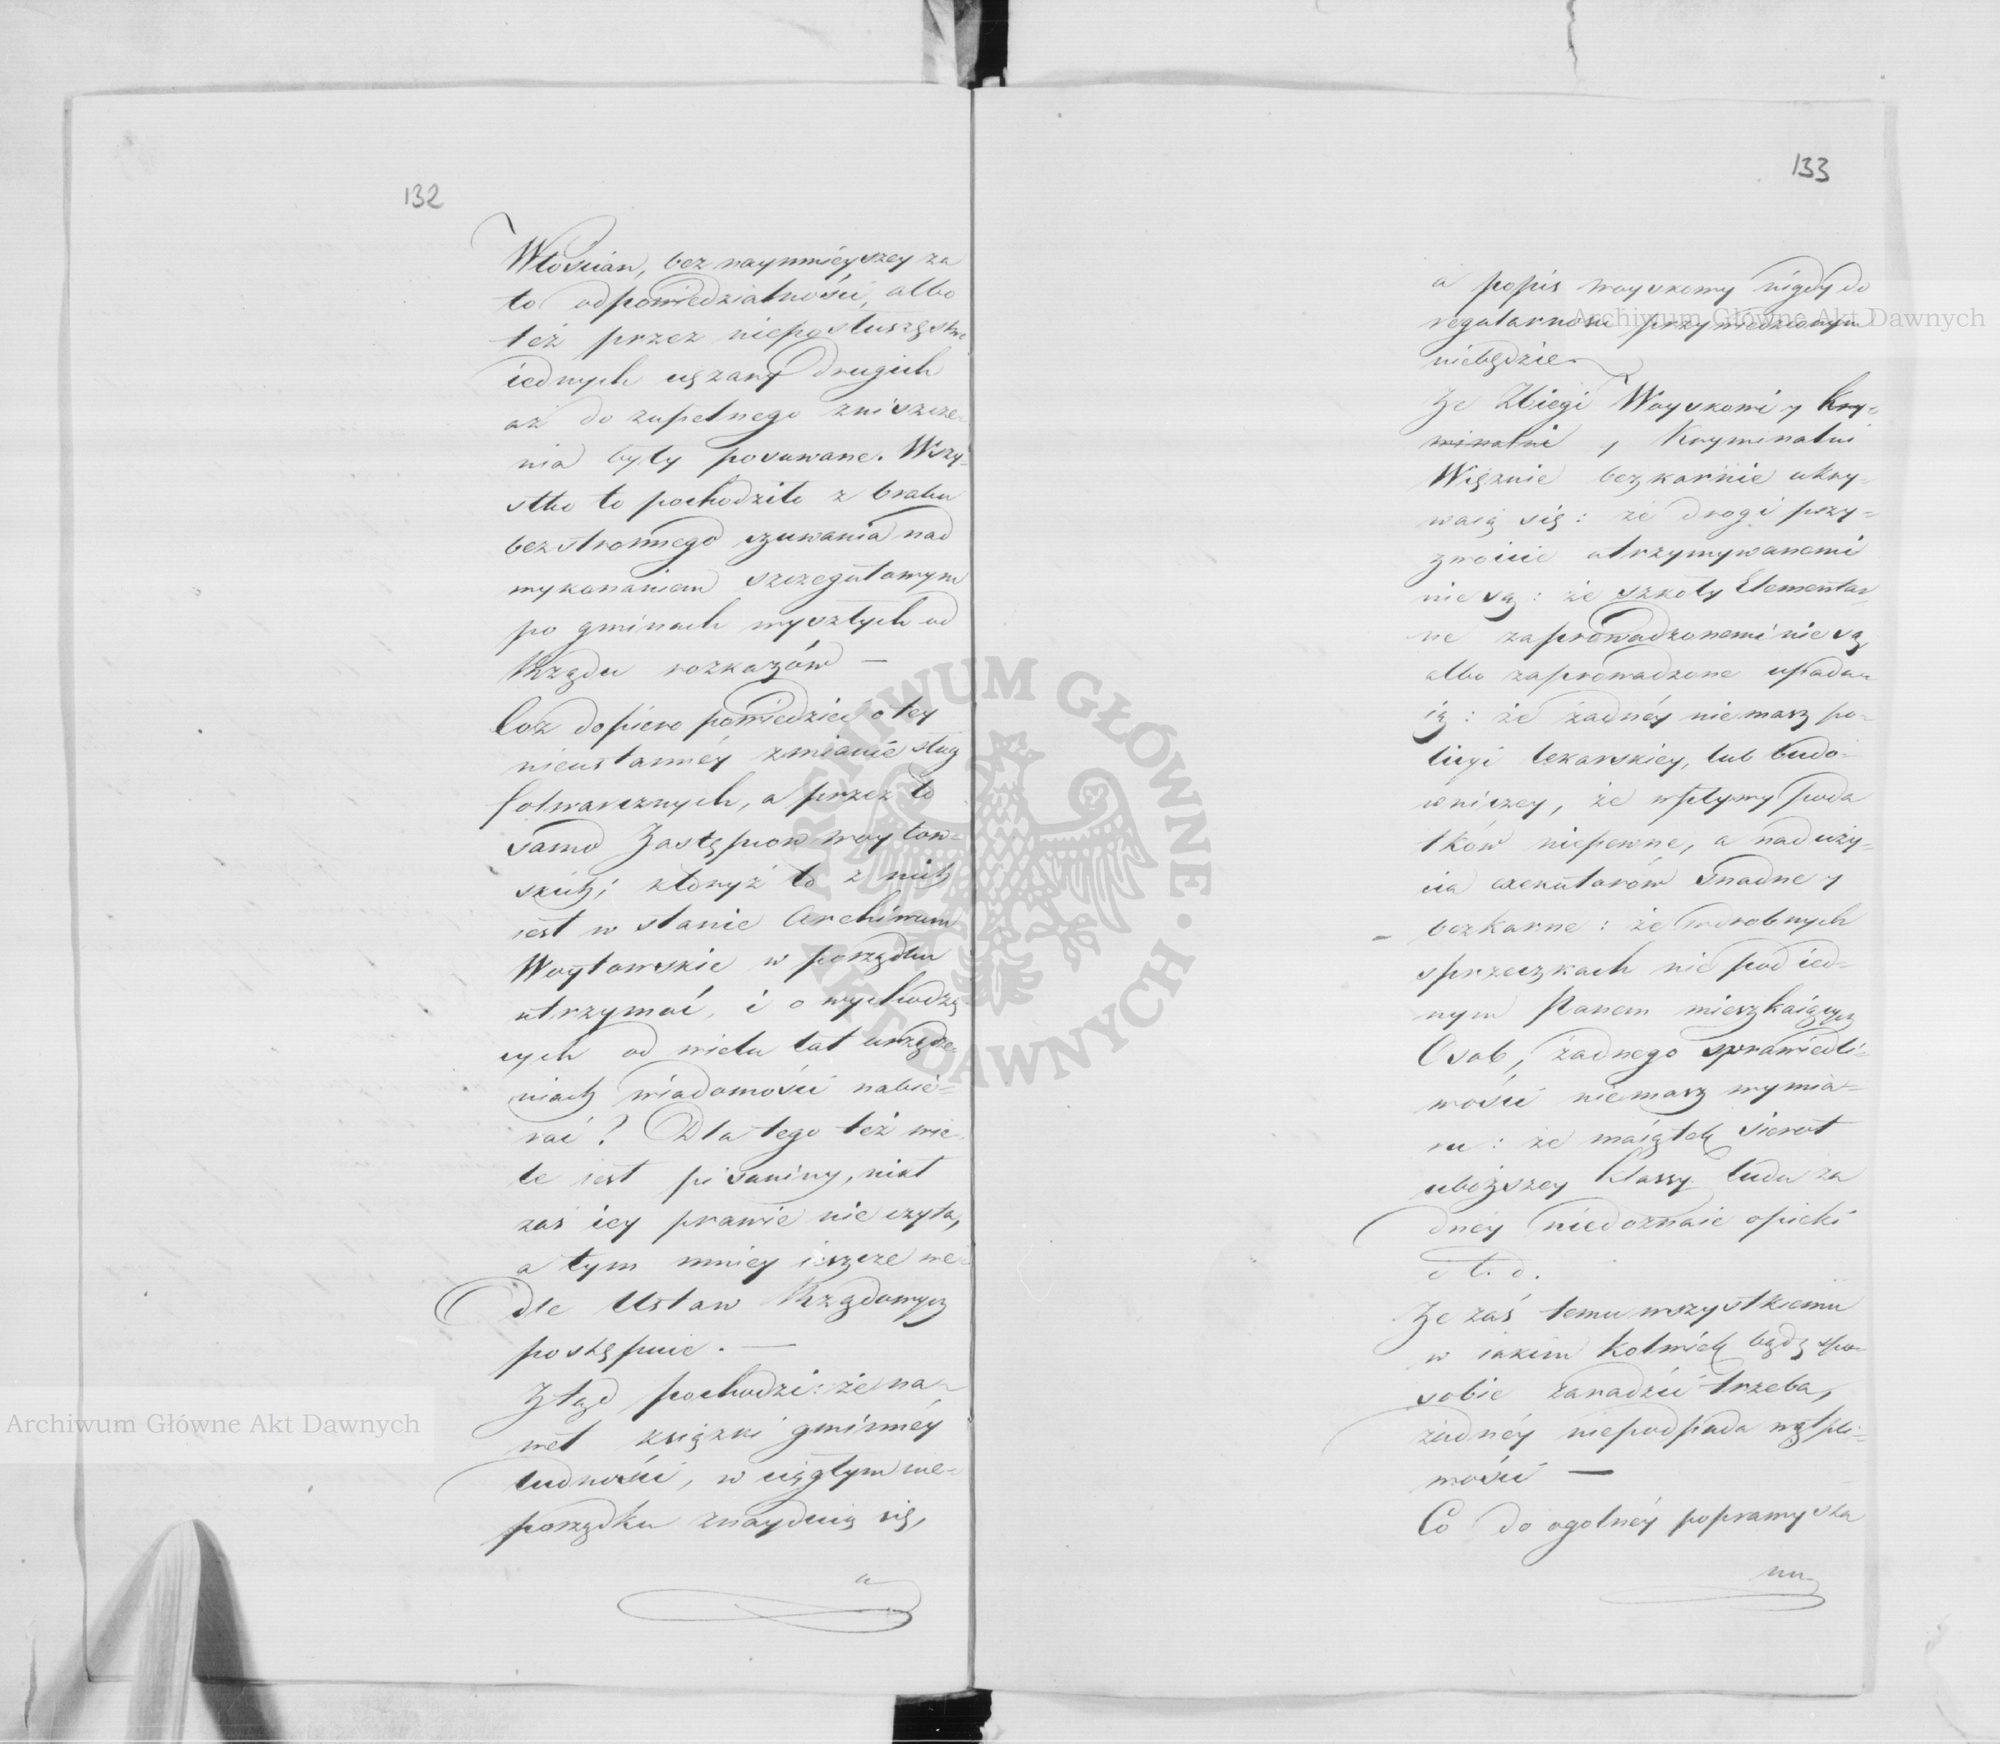 132
Włoscian, bez naymnieyszey za
to odpowiedzialności, albo
też przez nieposłuszęstwo
iednych uciążany drugich
aż do zupełnego zniszcze-
nia były posuwane. Wszy-
stko to pochodziło z braku
bezstronnego czuwania nad
wykonaniem szczegułowym
po gminach wyszłych od
Rządu rozkazów —
Coż dopiero powiedzieć o tey
nieustannéy zmianie sług
folwarcznych, a przez to
samo Zastępców woytow-
skich; któryż to z nich
iest w stanie Archiwum
Woytowskie w porządku
utrzymać, i o wychodzą-
cych od wielu lat urządze-
niach wiadomości nabie-
rać? Dla tego też wie-
le iest pisaniny, nikt
zaś iey prawie nie czyta,
a tym mniey ieszcze we-
dle Ustaw Rządowych
postępuie. —
Ztąd pochodzi: że na-
wet książki gminnéy
ludności, w ciągłym nie-
porządku znayduią się,
a
133
a popis woyskowy nigdy do
regularności przywiedzionym
niebędzie
Ze Zbiegi Woyskowi y Kry-
minalni, Kryminalni
Więznie bezkarnie ukry-
waią się: że drogi przy-
zwoicie utrzymywanemi
nie są: że szkoły Elementar-
ne zaprowadzonemi nie są
albo zaprowadzone upada-
ią: że żadnéy nie masz po-
licyi lekarskiey, lub budo-
wniczey, że wpływy poda
tków niepewne, a naduży-
cia exekutorów snadne y
bezkarne: że w drobnych
sprzeczkach nie pod ied-
nym Panem mieszkaiących
Osob, żadnego sprawiedli-
wości niemasz wymia-
ru: że maiątek sierot
uboższey klassy ludu ża
dnéy niedoznaie opieki
i t. d.
Ze zaś temu wszystkiemu
w iakim kolwiek bądź spo-
sobie zaradzić trzeba,
żadnéy niepodpada wątpli-
wości —
Co do ogolnéy poprawy sta
nu
Archiwum Główne Akt Dawnych
Archiwum Główne Akt Dawnych
ARCHIWUM GŁÓWNE · AKT DAWNYCH ·